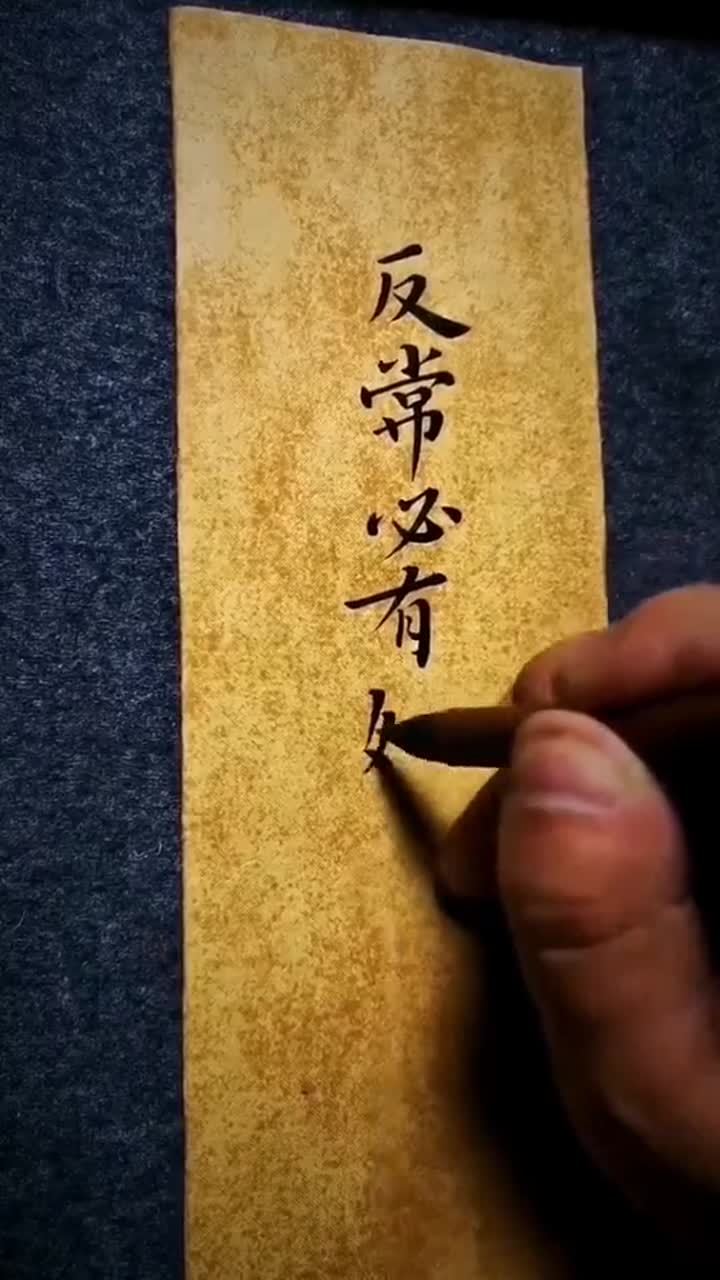 反常必有